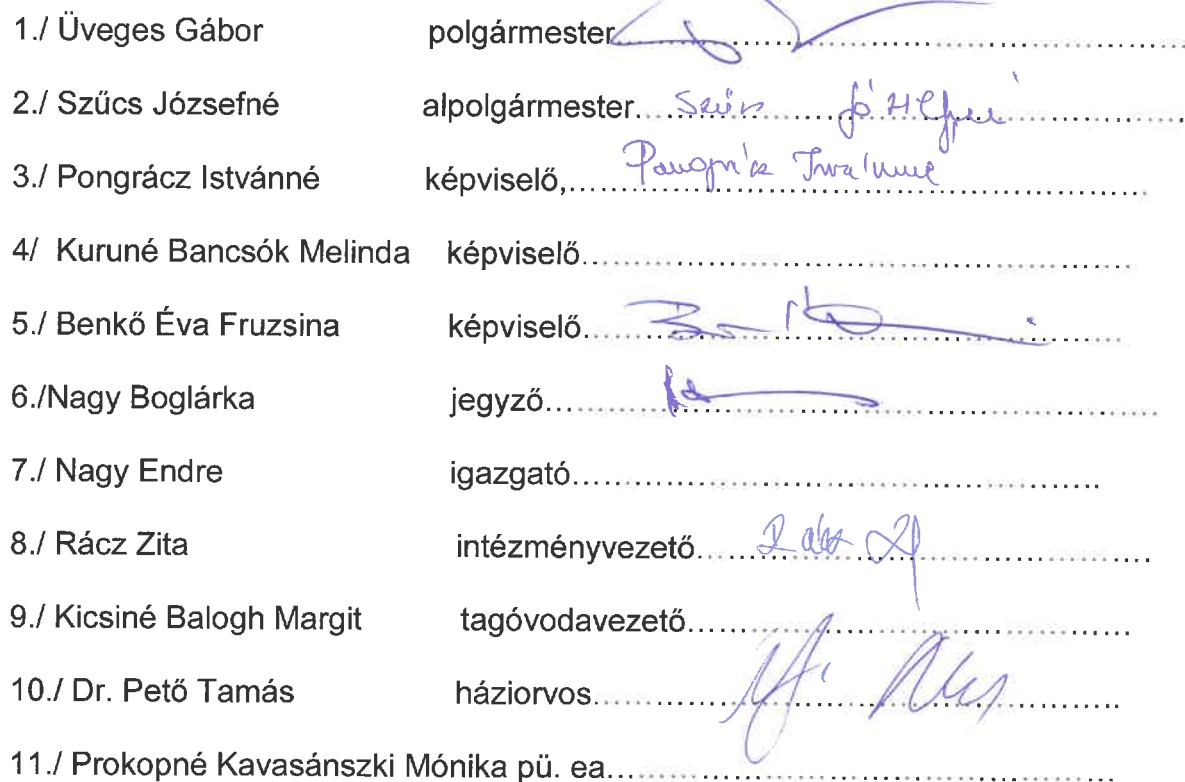 1./ Üveges Gábor polgármester........................................
2./ Szűcs Józsefné alpolgármester.... Szűcs Józsefné
3./ Pongrácz Istvánné képviselő,.... Pongrácz Istvánné
4/ Kuruné Bancsók Melinda képviselő........................................
5./ Benkő Éva Fruzsina képviselő........................................
6./Nagy Boglárka jegyző........................................
7./ Nagy Endre igazgató........................................
8./ Rácz Zita intézményvezető.... Rácz Z
9./ Kicsiné Balogh Margit tagóvodavezető........................................
10./ Dr. Pető Tamás háziorvos........................................
11./ Prokopné Kavasánszki Mónika pü. ea........................................